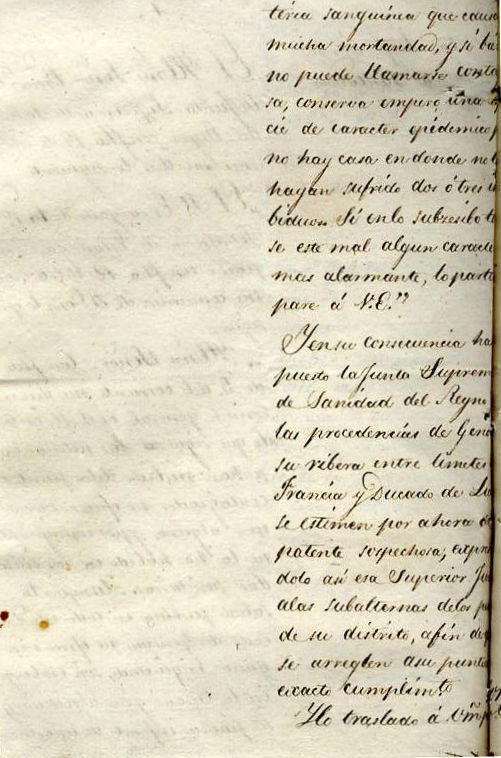 teria sanguinea que causa
mucha mortandad, y si b
no puede llamarse conta
sa, conserva empero, una
cie de caracter epidemico
no hay casa en donde no
hayan sufrido dos ó tres i
biduos. Si en lo subzesibo t
se este mal algun caracte
mas alarmante, lo parti
pare á V.E."
Y en su consecuencia ha
puesto la Junta Suprem
de Sanidad del Reyno
las procedencias de Geno
su ribera entre limites
Francia y Ducado de Lu
se estimen por ahora de
patente sospechosa, expre
dolo asi esa Superior Ju
a las subalternas de los p
de su distrito, a fin de q
se arreglen a su puntu
exacto cumplimto
Y lo traslado á Vm p